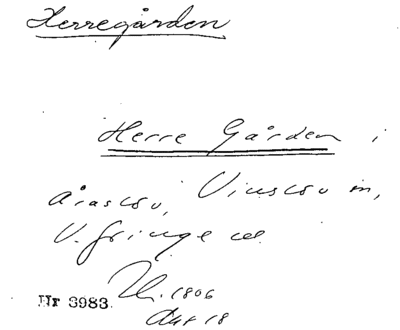 Herregården
Herre Gården i
Åraslöv, Vinslöv sn,
V. Göinge hd
Nr 3983. 1806
Akt 18